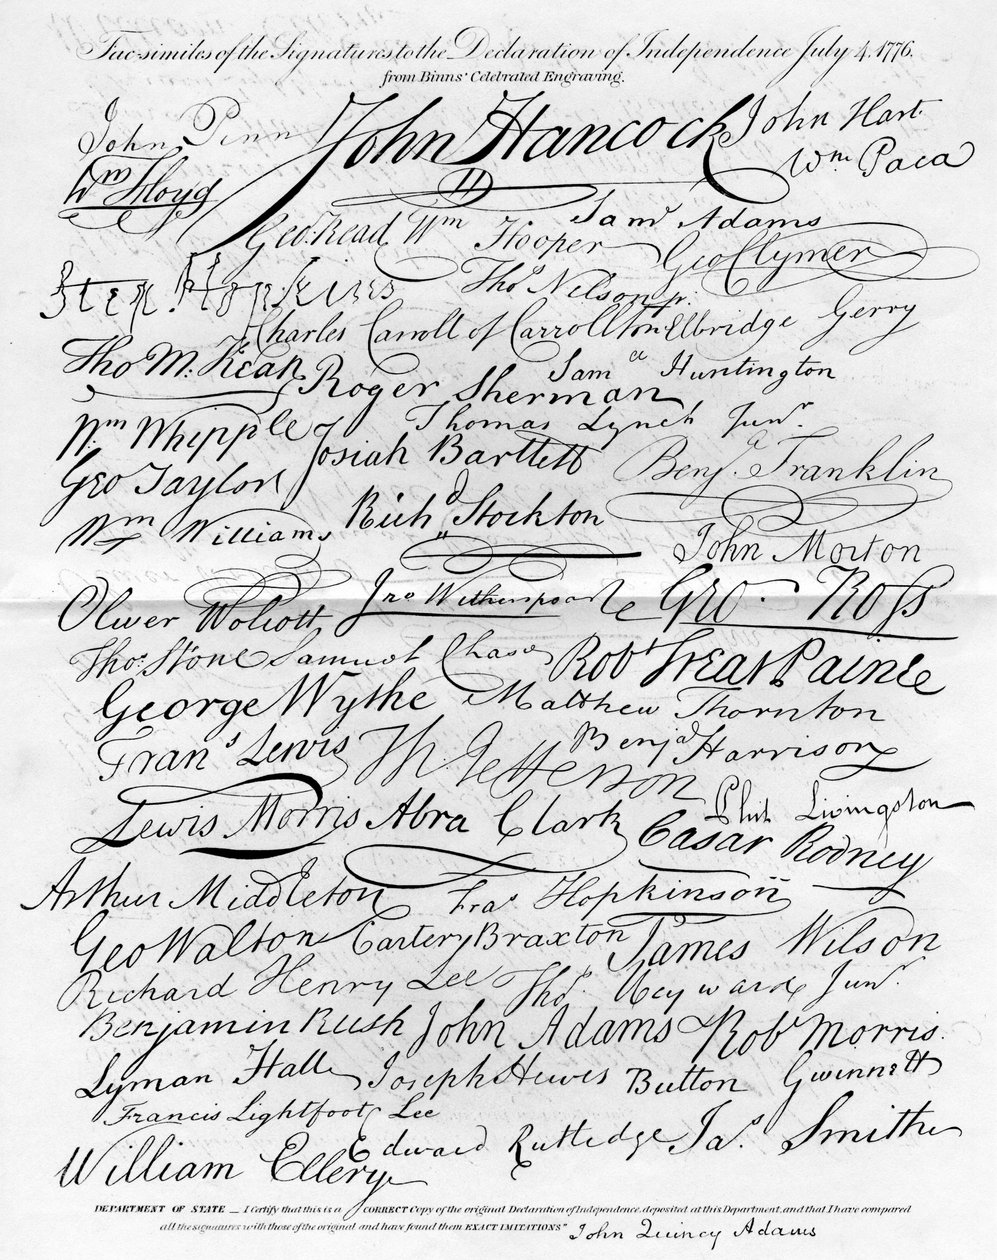 Fac-similes of the Signatures to the Declaration of Independence July 4. 1776.
from Binns' Celebrated Engraving.
John Penn John Hancock John Hart
Wm Floyd Wm Paca
Geo. Read Wm Hooper Saml Adams
Geo Clymer
Step. Hopkins Thos Nelson jr.
Charles Carroll of Carrollton Elbridge Gerry
Tho M: Kean Roger Sherman Saml Huntington
Wm Whipple Thomas Lynch Junr.
Josiah Bartlett Benja. Franklin
Geo Taylor
Wm Williams Richd Stockton
John Morton
Oliver Wolcott Jno Witherspoon Geo. Ross
Thos. Stone Samuel Chase Robt Treat Paine
George Wythe Matthew Thornton
Frans Lewis Th Jefferson Benja Harrison
Lewis Morris Abra Clark Phil. Livingston
Cæsar Rodney
Arthur Middleton Fras Hopkinson
Geo Walton Carter Braxton James Wilson
Richard Henry Lee Thos. Heyward Junr.
Benjamin Rush John Adams Robt Morris.
Lyman Hall Joseph Hewes Button Gwinnett
Francis Lightfoot Lee
William Ellery Edward Rutledge Jas Smith
DEPARTMENT OF STATE _ I Certify that this is a CORRECT Copy of the original Declaration of Independence, deposited at this Department, and that I have compared
all the signatures with those of the original and have found them EXACT IMITATIONS" John Quincy Adams